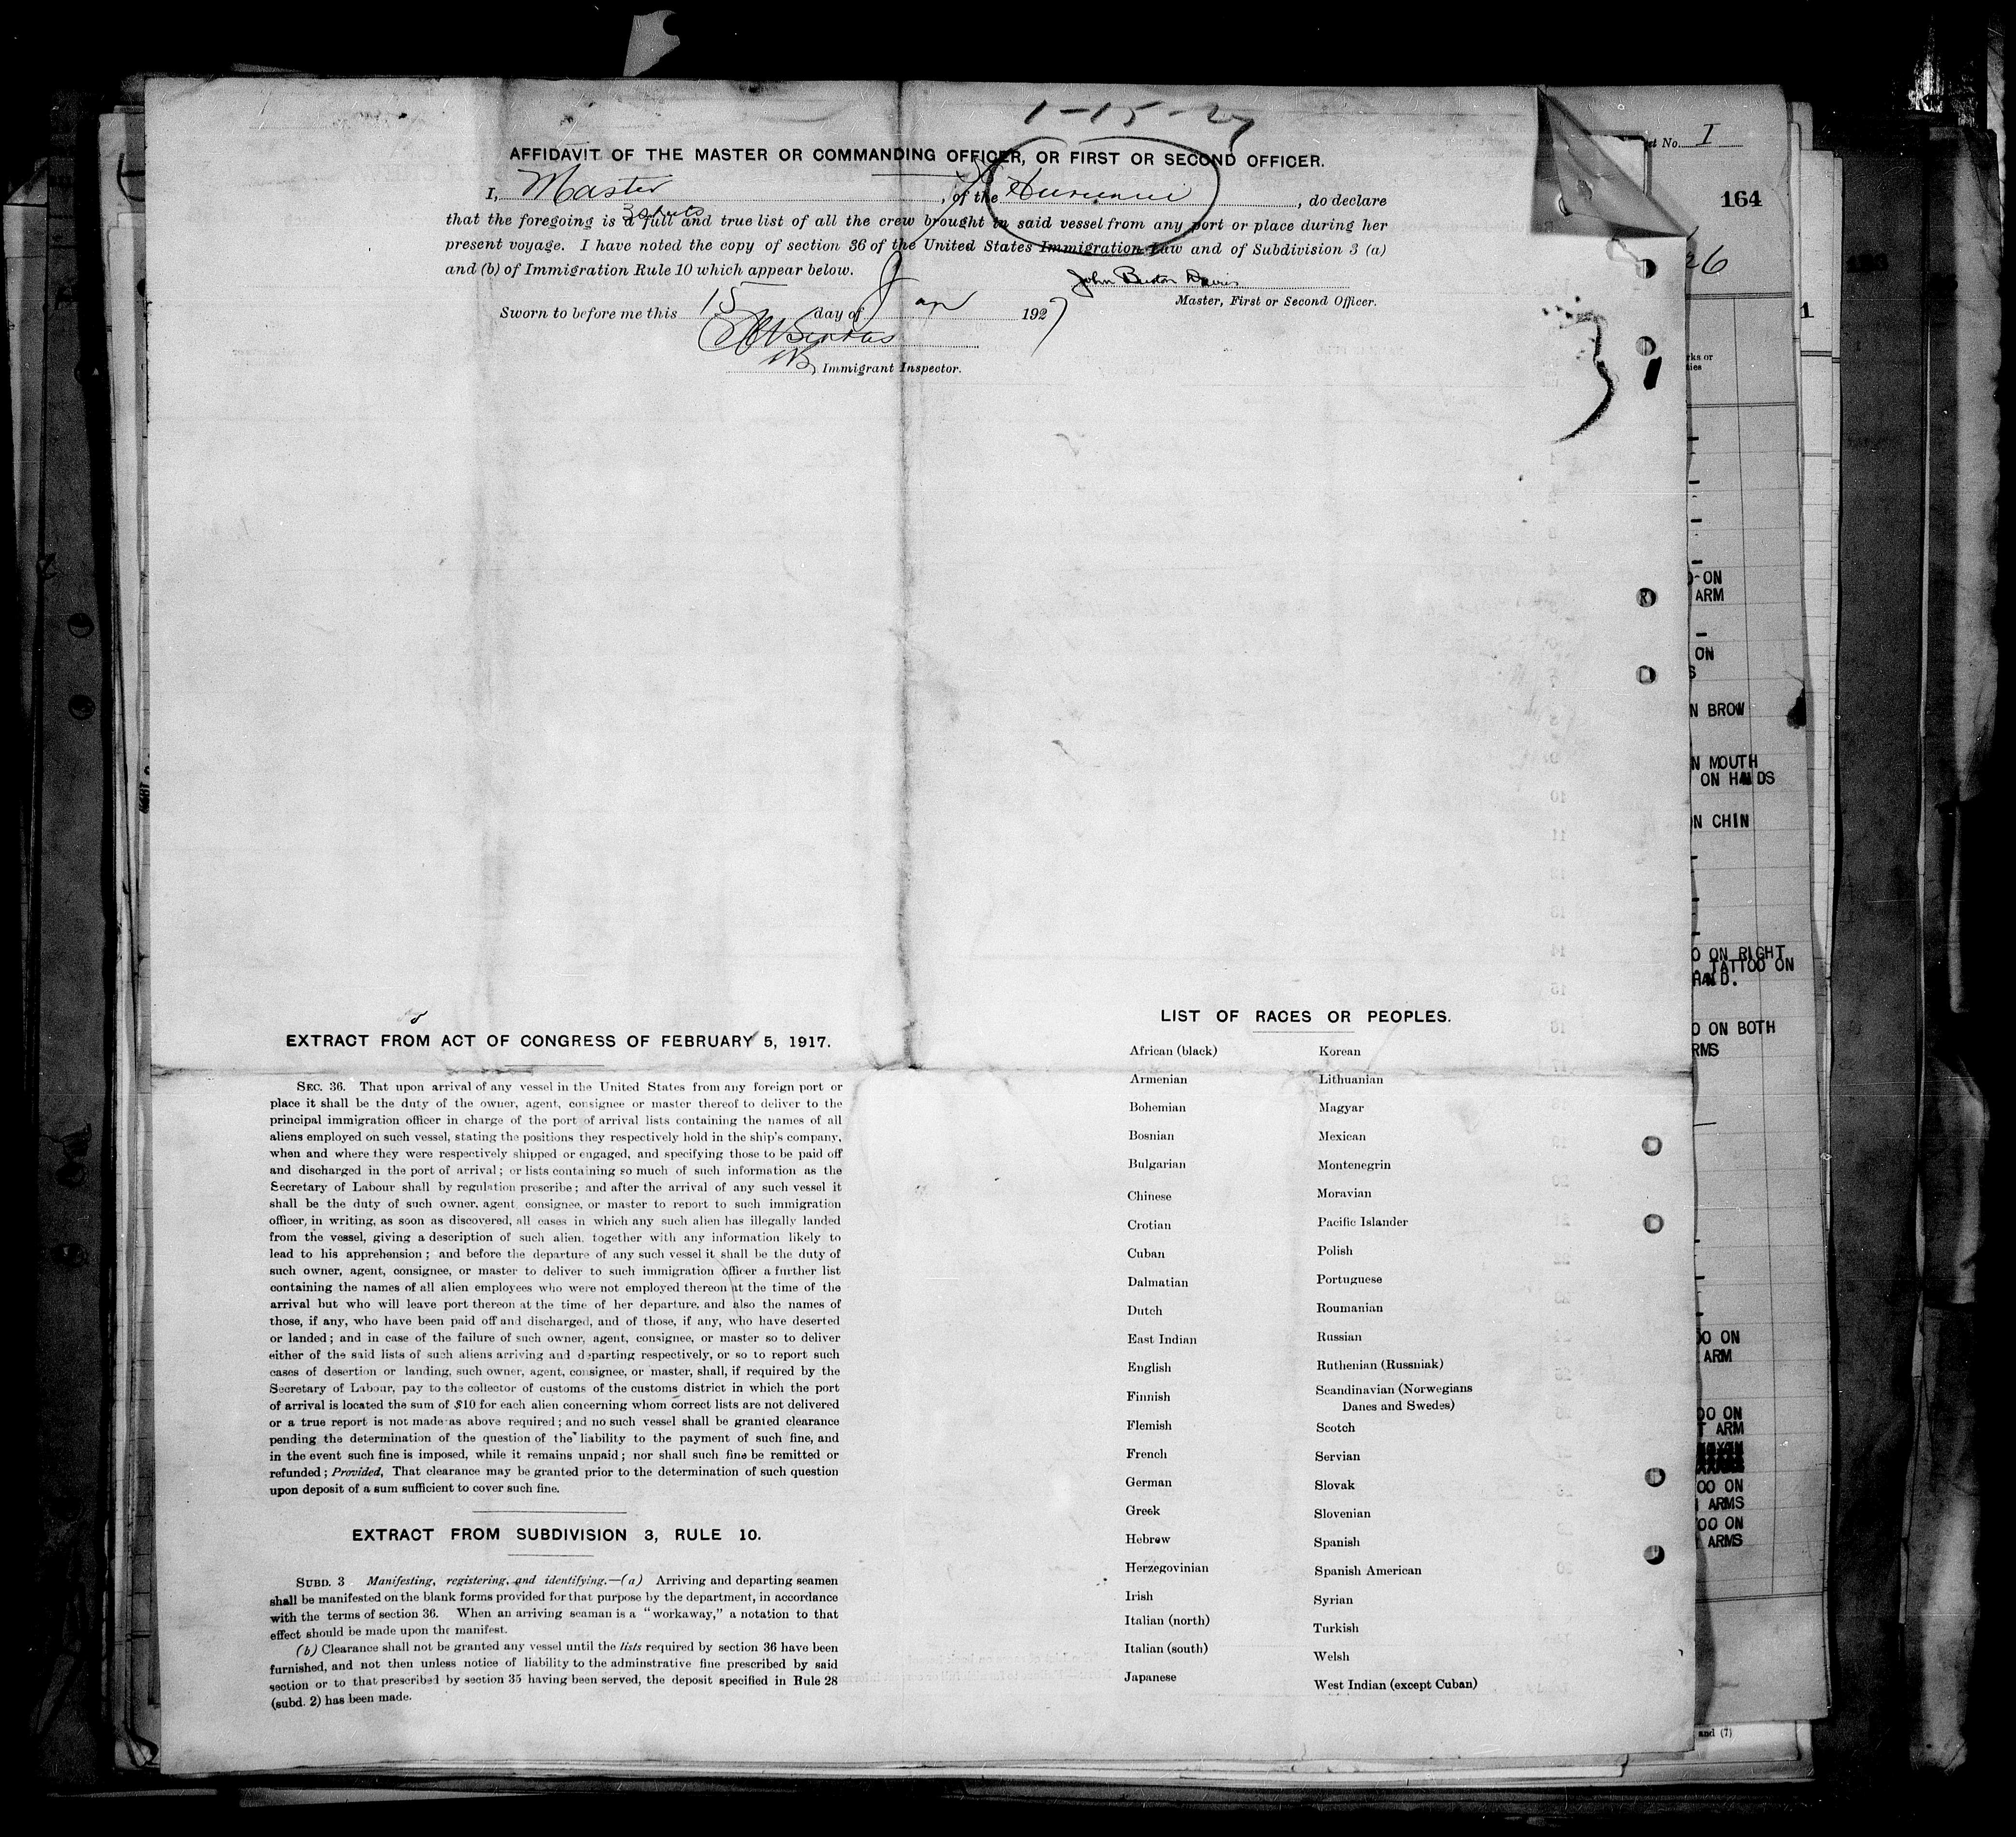 1-15-27
AFFIDAVIT OF THE MASTER OR COMMANDING OFFICER, OR FIRST OR SECOND OFFICER.
I, Master, of the , do declare
3 sheets
that the foregoing is a full and true list of all the crew brought in said vessel from any port or place during her
present voyage. I have noted the copy of section 36 of the United States Immigration Law and of Subdivision 3 (a)
and (b) of Immigration Rule 10 which appear below.
John Davis
Master, First or Second Officer.
Sworn to before me this 15 day of Jan 1927
Immigrant Inspector.
EXTRACT FROM ACT OF CONGRESS OF FEBRUARY 5, 1917.
SEC. 36. That upon arrival of any vessel in the United States from any foreign port or
place it shall be the duty of the owner, agent, consignee or master thereof to deliver to the
principal immigration officer in charge of the port of arrival lists containing the names of all
aliens employed on such vessel, stating the positions they respectively hold in the ship's company,
when and where they were respectively shipped or engaged, and specifying those to be paid off
and discharged in the port of arrival; or lists containing so much of such information as the
Secretary of Labour shall by regulation prescribe; and after the arrival of any such vessel it
shall be the duty of such owner, agent, consignee, or master to report to such immigration
officer, in writing, as soon as discovered, all cases in which any such alien has illegally landed
from the vessel, giving a description of such alien, together with any information likely to
lead to his apprehension; and before the departure of any such vessel it shall be the duty of
such owner, agent, consignee, or master to deliver to such immigration officer a further list
containing the names of all alien employees who were not employed thereon at the time of the
arrival but who will leave port thereon at the time of her departure, and also the names of
those, if any, who have been paid off and discharged, and of those, if any, who have deserted
or landed; and in case of the failure of such owner, agent, consignee, or master so to deliver
either of the said lists of such aliens arriving and departing respectively, or so to report such
cases of desertion or landing, such owner, agent, consignee, or master, shall, if required by the
Secretary of Labour, pay to the collector of customs of the customs district in which the port
of arrival is located the sum of $10 for each alien concerning whom correct lists are not delivered
or a true report is not made as above required; and no such vessel shall be granted clearance
pending the determination of the question of the liability to the payment of such fine, and
in the event such fine is imposed, while it remains unpaid; nor shall such fine be remitted or
refunded; Provided, That clearance may be granted prior to the determination of such question
upon deposit of a sum sufficient to cover such fine.
EXTRACT FROM SUBDIVISION 3, RULE 10.
SUBD. 3 Manifesting, registering, and identifying.—(a) Arriving and departing seamen
shall be manifested on the blank forms provided for that purpose by the department, in accordance
with the terms of section 36. When an arriving seaman is a "workaway," a notation to that
effect should be made upon the manifest.
(b) Clearance shall not be granted any vessel until the lists required by section 36 have been
furnished, and not then unless notice of liability to the adminstrative fine prescribed by said
section or to that prescribed by section 35 having been served, the deposit specified in Rule 28
(subd. 2) has been made.
LIST OF RACES OR PEOPLES.
African (black)
Armenian
Bohemian
Bosnian
Bulgarian
Chinese
Crotian
Cuban
Dalmatian
Dutch
East Indian
English
Finnish
Flemish
French
German
Greek
Hebrew
Herzegovinian
Irish
Italian (north)
Italian (south)
Japanese
Korean
Lithuanian
Magyar
Mexican
Montenegrin
Moravian
Pacific Islander
Polish
Portuguese
Roumanian
Russian
Ruthenian (Russniak)
Scandinavian (Norwegians
Danes and Swedes)
Scotch
Servian
Slovak
Slovenian
Spanish
Spanish American
Syrian
Turkish
Welsh
West Indian (except Cuban)
No. I
164
26
1
ON
ARM
ON
BROW
MOUTH
ON HANDS
CHIN
ON RIGHT
TATTOO ON
ON BOTH
ON
ARM
ON
ARM
ON
ARMS
ON
ARMS
and (7)